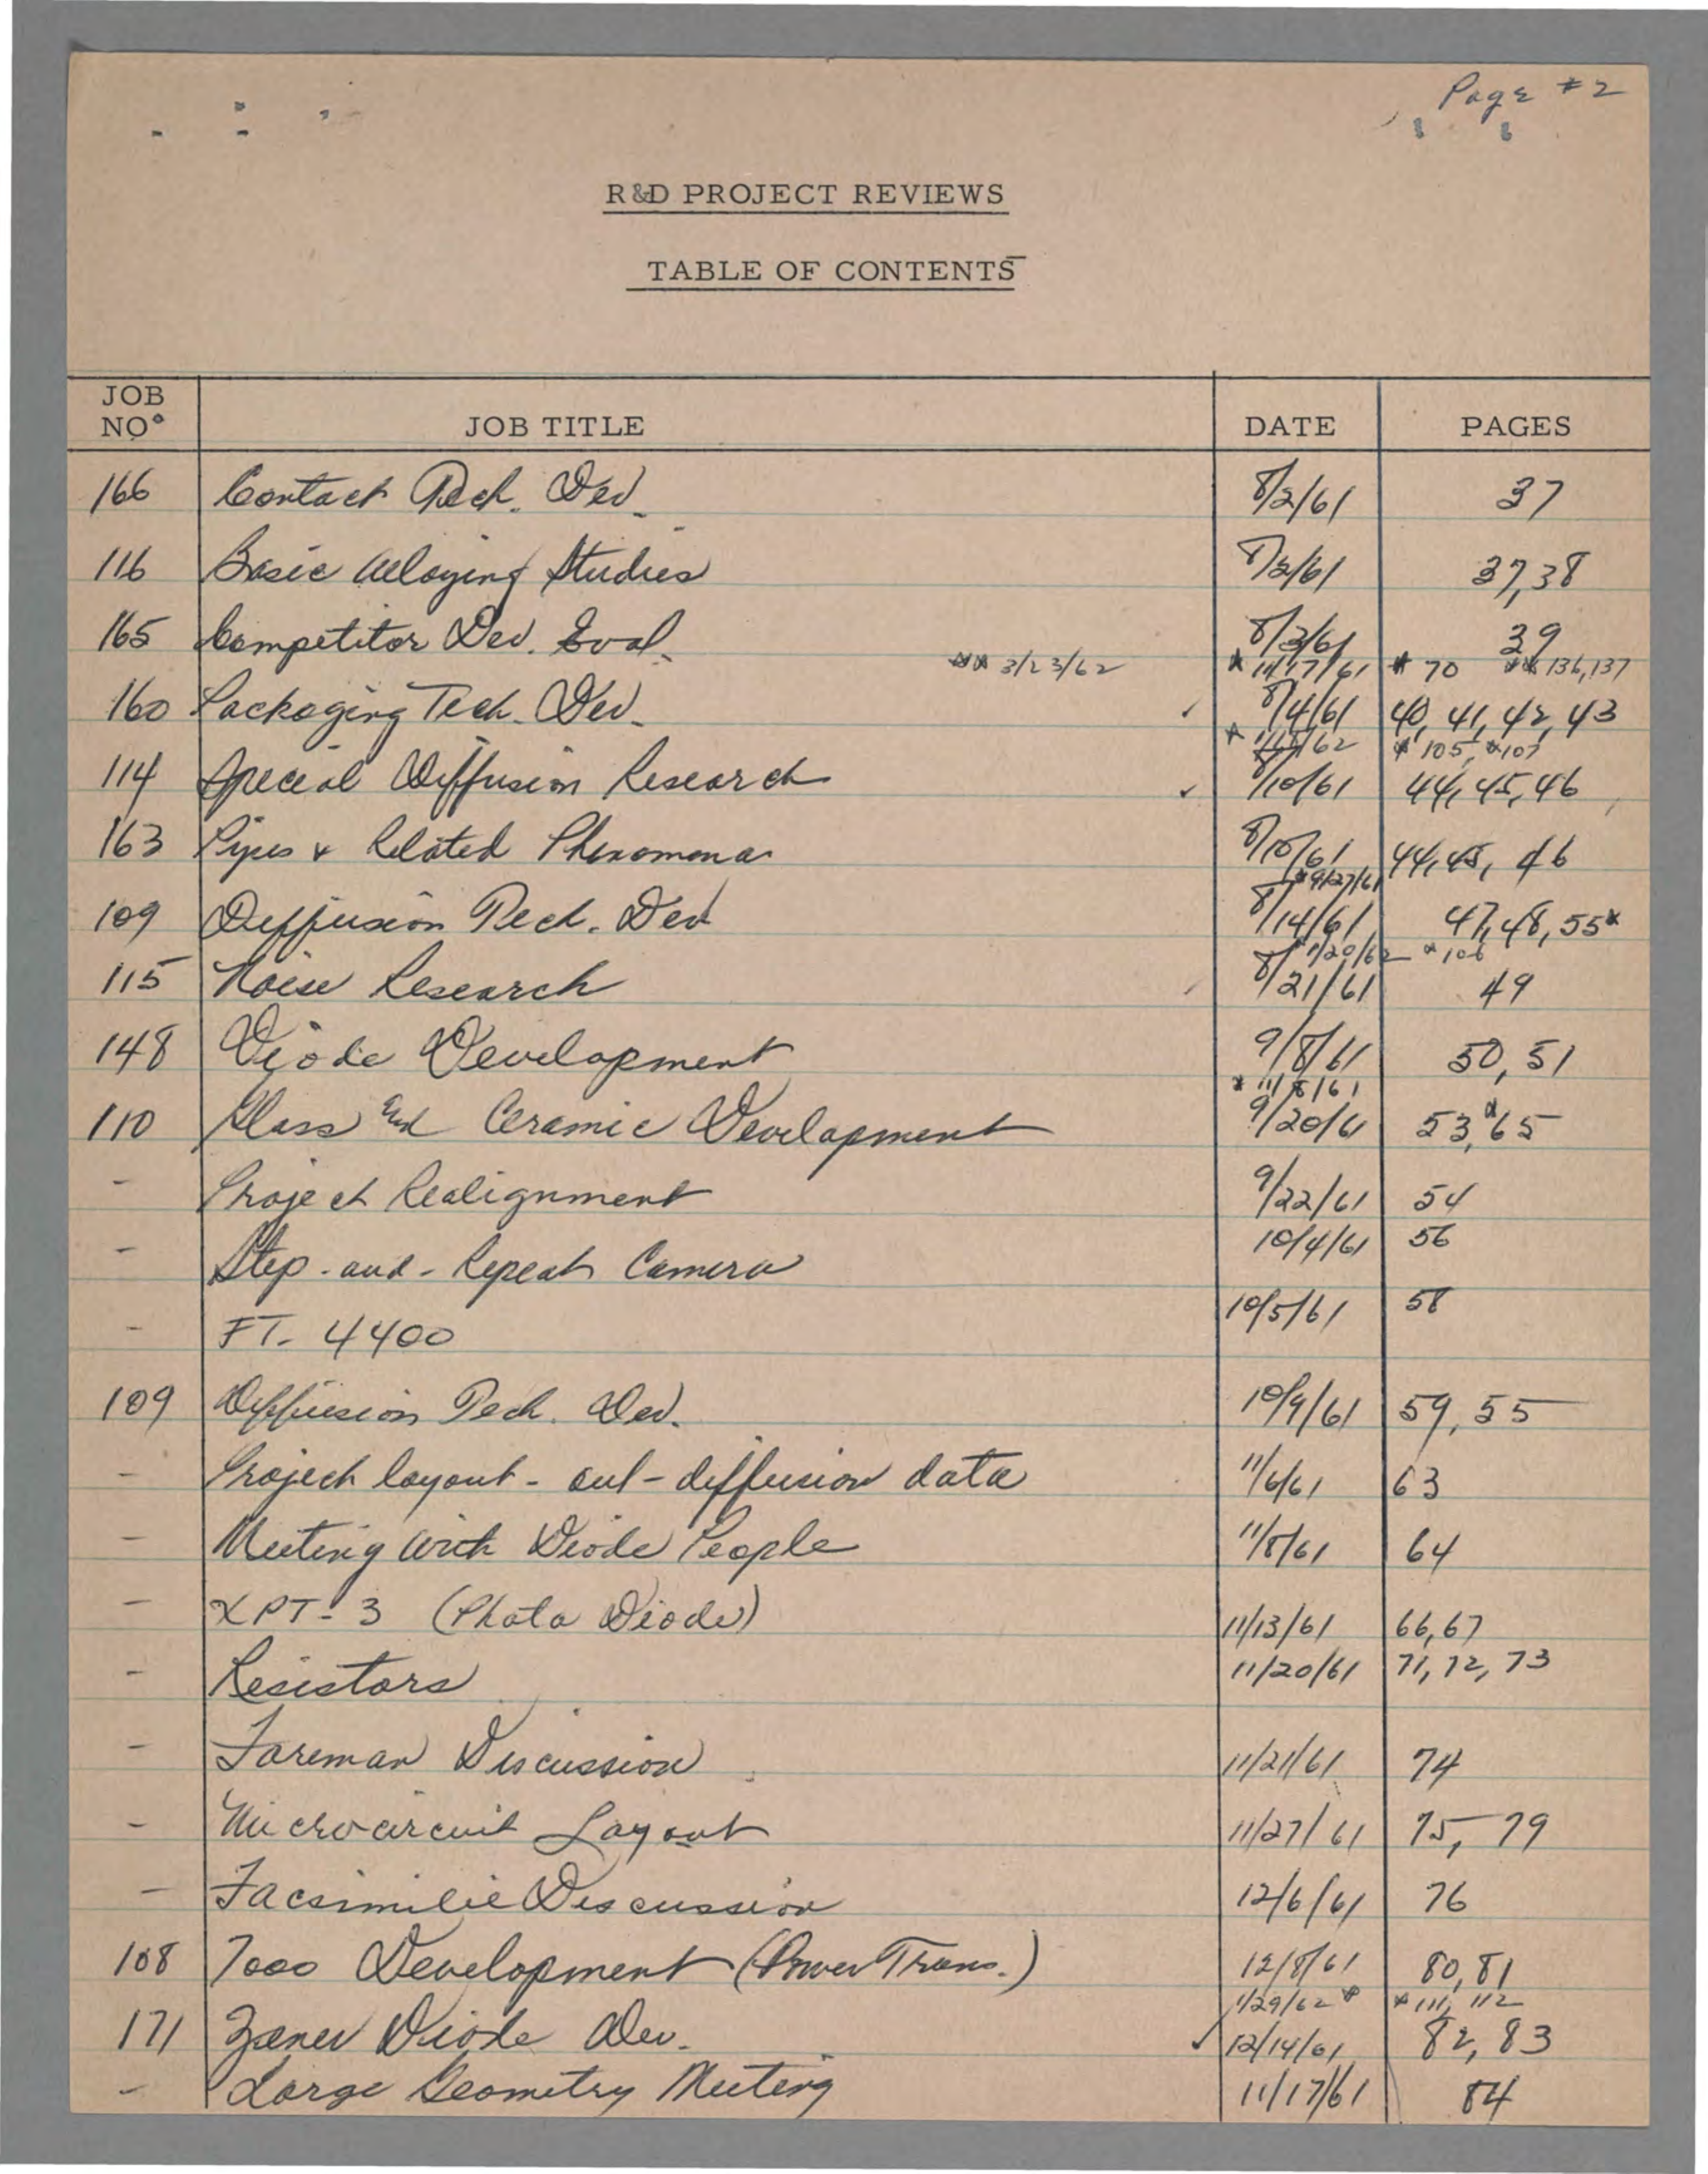 Page #2
R&D PROJECT REVIEWS
TABLE OF CONTENTS
JOB NO. JOB TITLE DATE PAGES
166 Contact Tech. Dev. 8/2/61 37
116 Basic Alloying Studies 8/2/61 37,38
165 Competitor Dev. Eval. 8/3/61 39
** 3/23/62 * 11/17/61 * 70 ** 136,137
160 Packaging Tech. Dev. ✓ 8/4/61 40, 41, 42, 43
* 105, *107
114 Special Diffusion Research ✓ 8/10/61 44, 45, 46
163 Pipes & Related Phenomona 8/10/61 44, 45, 46
*9/27/61
109 Diffusion Tech. Dev 8/14/61 47, 48, 55*
1/20/62 *106
115 Noise Research 8/21/61 49
148 Diode Development 9/8/61 50, 51
* 11/8/61
110 Glass and Ceramic Development 9/20/61 53, *65
- Project Realignment 9/22/61 54
- Step-and-Repeat Camera 10/4/61 56
- FT-4400 10/5/61 58
109 Diffusion Tech. Dev. 10/9/61 59, 55
- Project layout - out-diffusion data 11/6/61 63
- Meeting with Diode People 11/8/61 64
- XPT-3 (Photo Diode) 11/13/61 66,67
- Resistors 11/20/61 71, 72, 73
- Foreman Discussion 11/21/61 74
- Microcircuit Layout 11/27/61 75, 79
- Facsimilie Discussion 12/6/61 76
108 7000 Development (Power Trans.) 12/8/61 80, 81
1/29/62 * * 111, 112
171 Zener Diode Dev. ✓ 12/14/61 82, 83
- Large Geometry Meeting 11/17/61 84